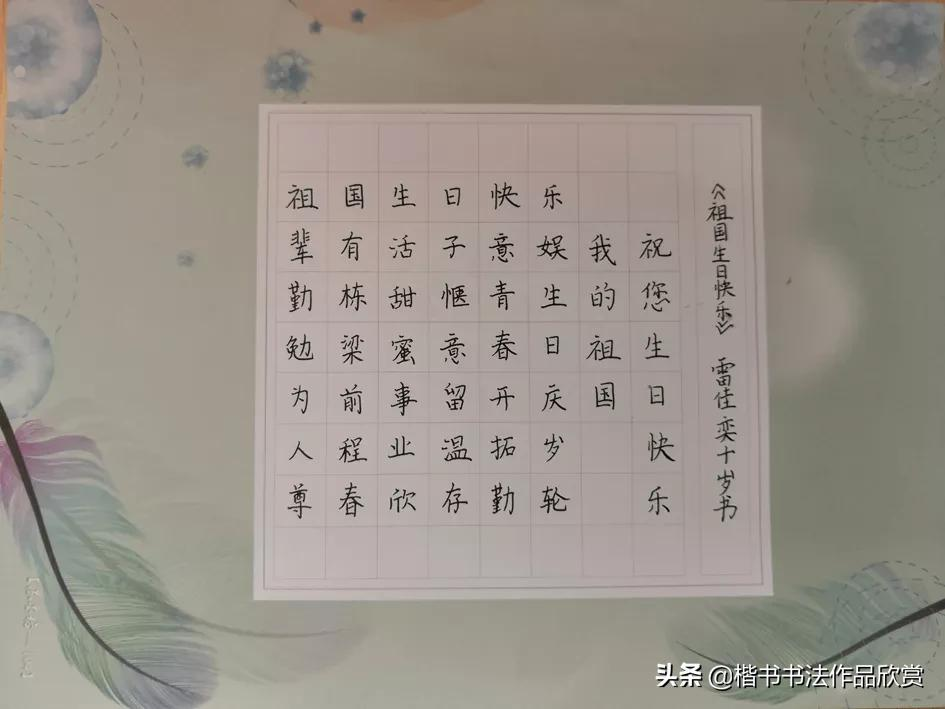 《祖国生日快乐》 雷佳奕十岁书
祖辈勤勉为人尊
国有栋梁前程春
生活甜蜜事业欣
日子惬意留温存
快意青春开拓勤
乐娱生日庆岁轮
我的祖国
祝您生日快乐
头条 @楷书书法作品欣赏